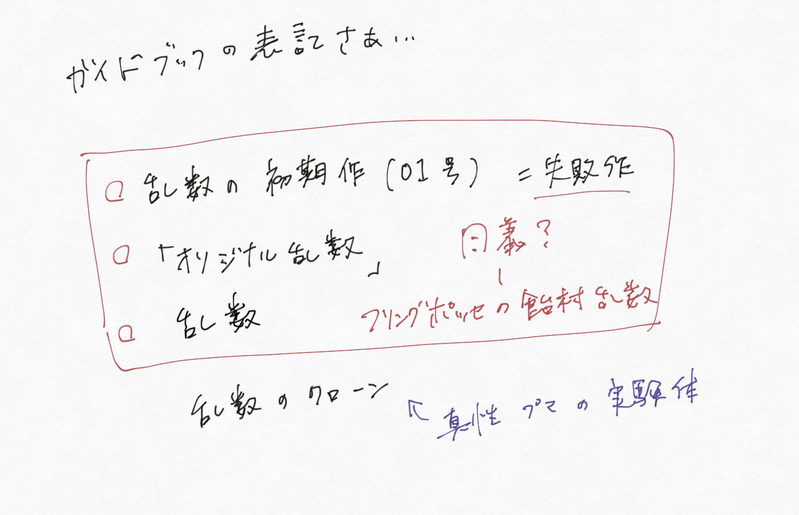 ガイドブックの表記さぁ…
乱数の初期作(01号) = 失敗作
「オリジナル乱数」
同義?
乱数
フリングポッセの飴村乱数
乱数のクローン
真性プマの実験体